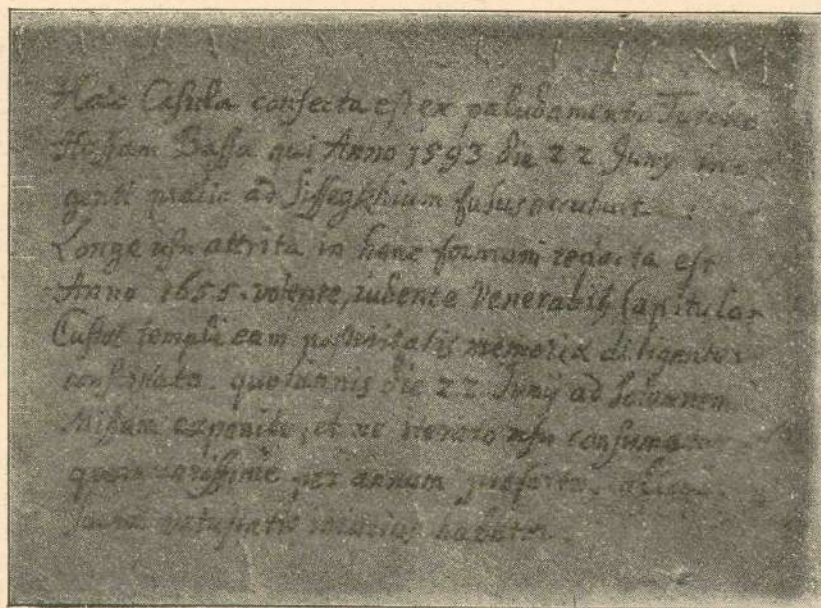 Haec Casula confecta est ex paludamento Turcico
Hassam Bassa qui Anno 1593 die 22 Junÿ in
genti praelio ad Sissegkhium fusus occubuit.
Longe usu attrita in hanc formam redacta est
Anno 1655. volente, iubente Venerabili Capitulo
Custos templi eam posteritatis memoriae diligenter
conservato. quotannis die 22 Junÿ ad solemnem
Missam exponito, et ne iterato usu consuma
quam rarissime per annum